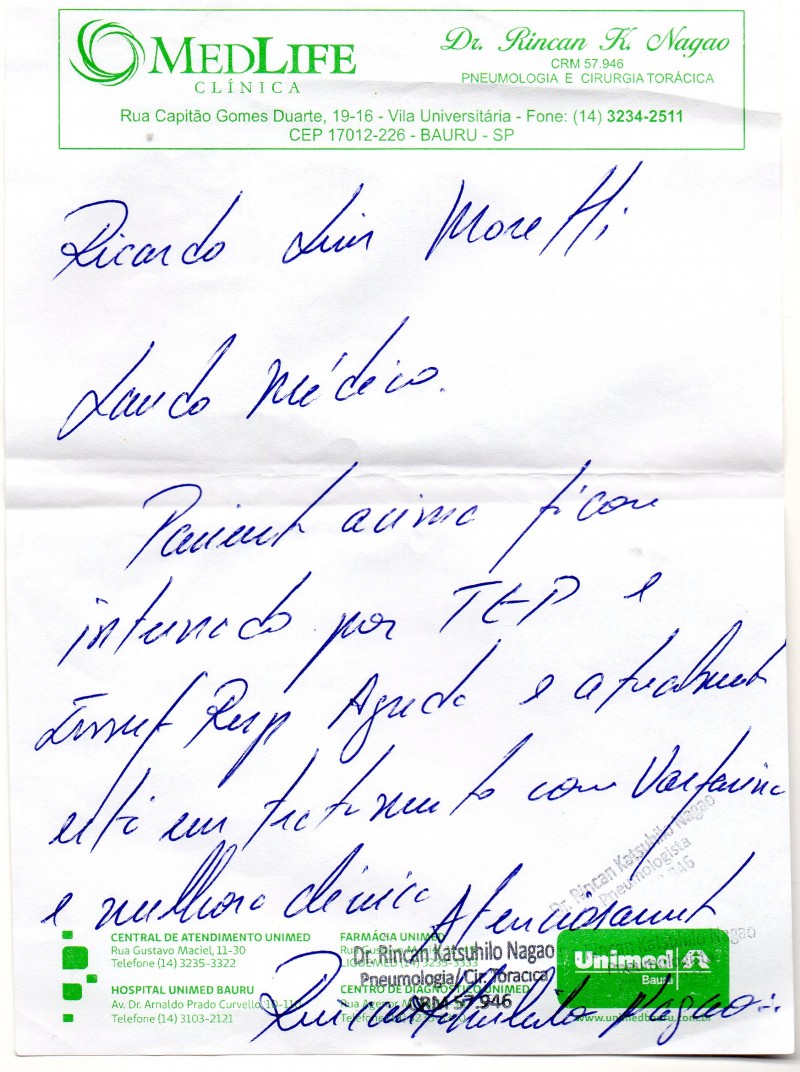 MEDLIFE
CLÍNICA
Dr. Rincan K. Nagao
CRM 57.946
PNEUMOLOGIA E CIRURGIA TORÁCICA
Rua Capitão Gomes Duarte, 19-16 - Vila Universitária - Fone: (14) 3234-2511
CEP 17012-226 - BAURU - SP
Ricardo Luis Moretti
Laudo Médico.
Pacient acima ficou
internado por TEP e
Insuf Resp Aguda e atualment
está em tratamento com Varfarina
e melhora clínica
Atenciosament
Dr. Rincan Katsuhilo Nagao
Pneumologista
946
CENTRAL DE ATENDIMENTO UNIMED
Rua Gustavo Maciel, 11-30
Telefone (14) 3235-3322
HOSPITAL UNIMED BAURU
Av. Dr. Arnaldo Prado Curvello, 10-110
Telefone (14) 3103-2121
FARMÁCIA UNIMED
Rua Gustavo
LIGUEMED (14) 3235-3333
CENTRO DE DIAGNÓSTICO UNIMED
Dr. Rincan Katsuhilo Nagao
Pneumologia/Cir. Torácica
CRM 57.946
Unimed
Bauru
www.unimedbauru.com.br